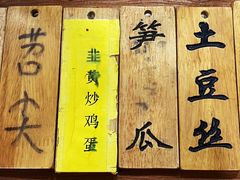 苦尖
韭黄炒鸡蛋
笋瓜
土豆丝